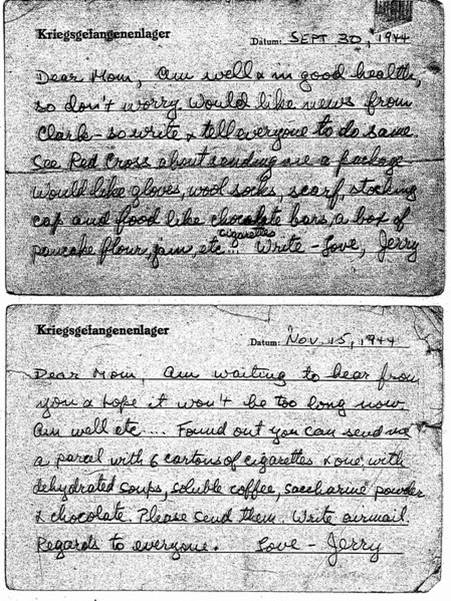 Kriegsgefangenenlager
Datum: SEPT 30, 1944
Dear Mom, Am well & in good health,
so don't worry. Would like news from
Clark - so write & tell everyone to do same.
See Red Cross about sending me a package
Would like gloves, wool socks, scarf, stocking
cap and food like chocolate bars, a box of
cigarettes
pancake flour, jam, etc... Write - Love, Jerry
Kriegsgefangenenlager
Datum: Nov. 15, 1944
Dear Mom, Am waiting to hear from
you & hope it won't be too long now.
Am well etc.... Found out you can send me
a parcel with 6 cartons of cigarettes & one with
dehydrated soups, soluble coffee, saccharine powder
& chocolate. Please send them. Write airmail.
Regards to everyone. Love - Jerry